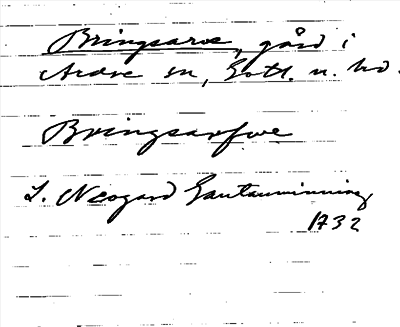 Bringsarve, gård i
Ardre sn, Gotl. n. hd.
Bringsarfwe
L. Neogard Gautauminning
1732